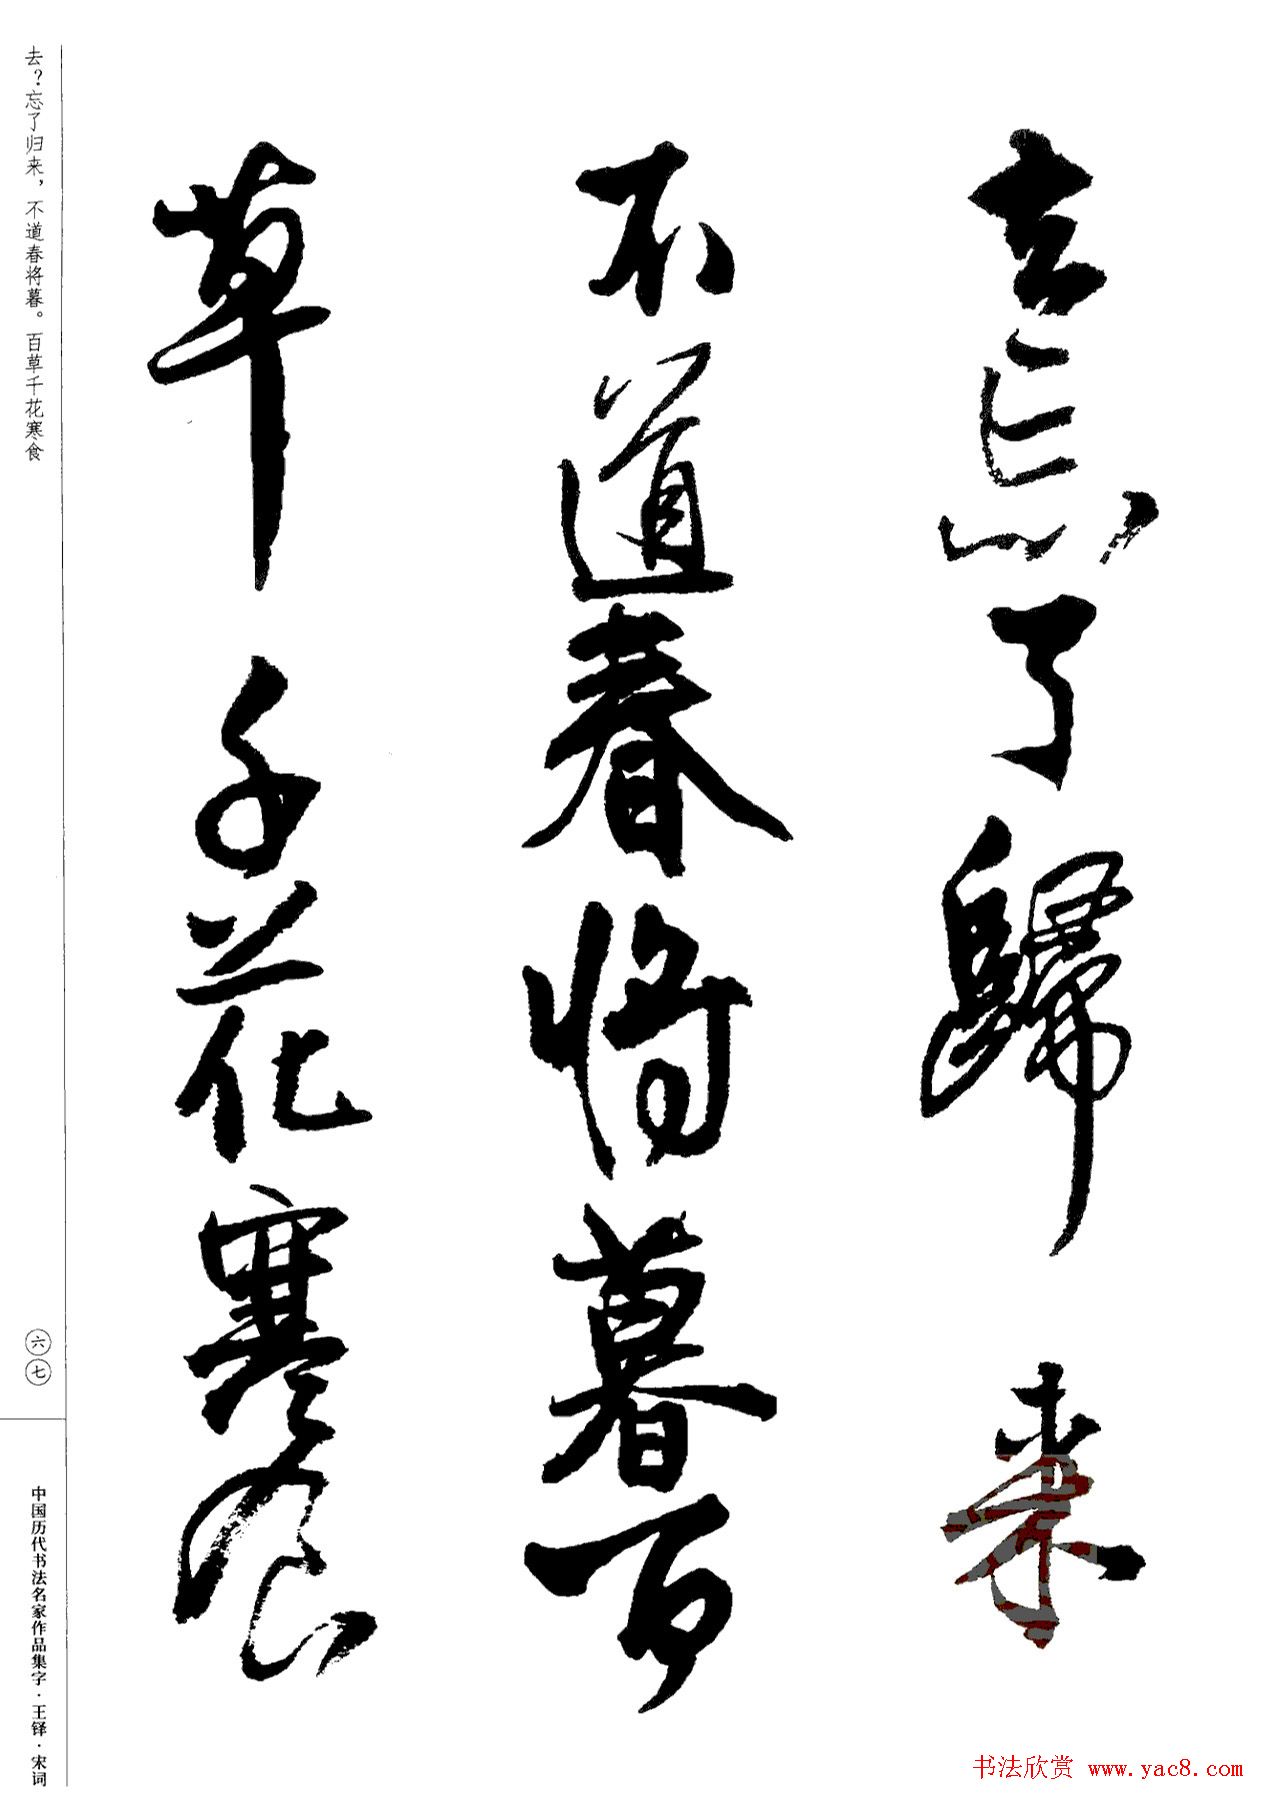 去忘了歸来
不道春将暮百
草千花寒食
去？忘了归来，不道春将暮。百草千花寒食
六七
中国历代书法名家作品集字·王铎·宋词
书法欣赏 www.yac8.com